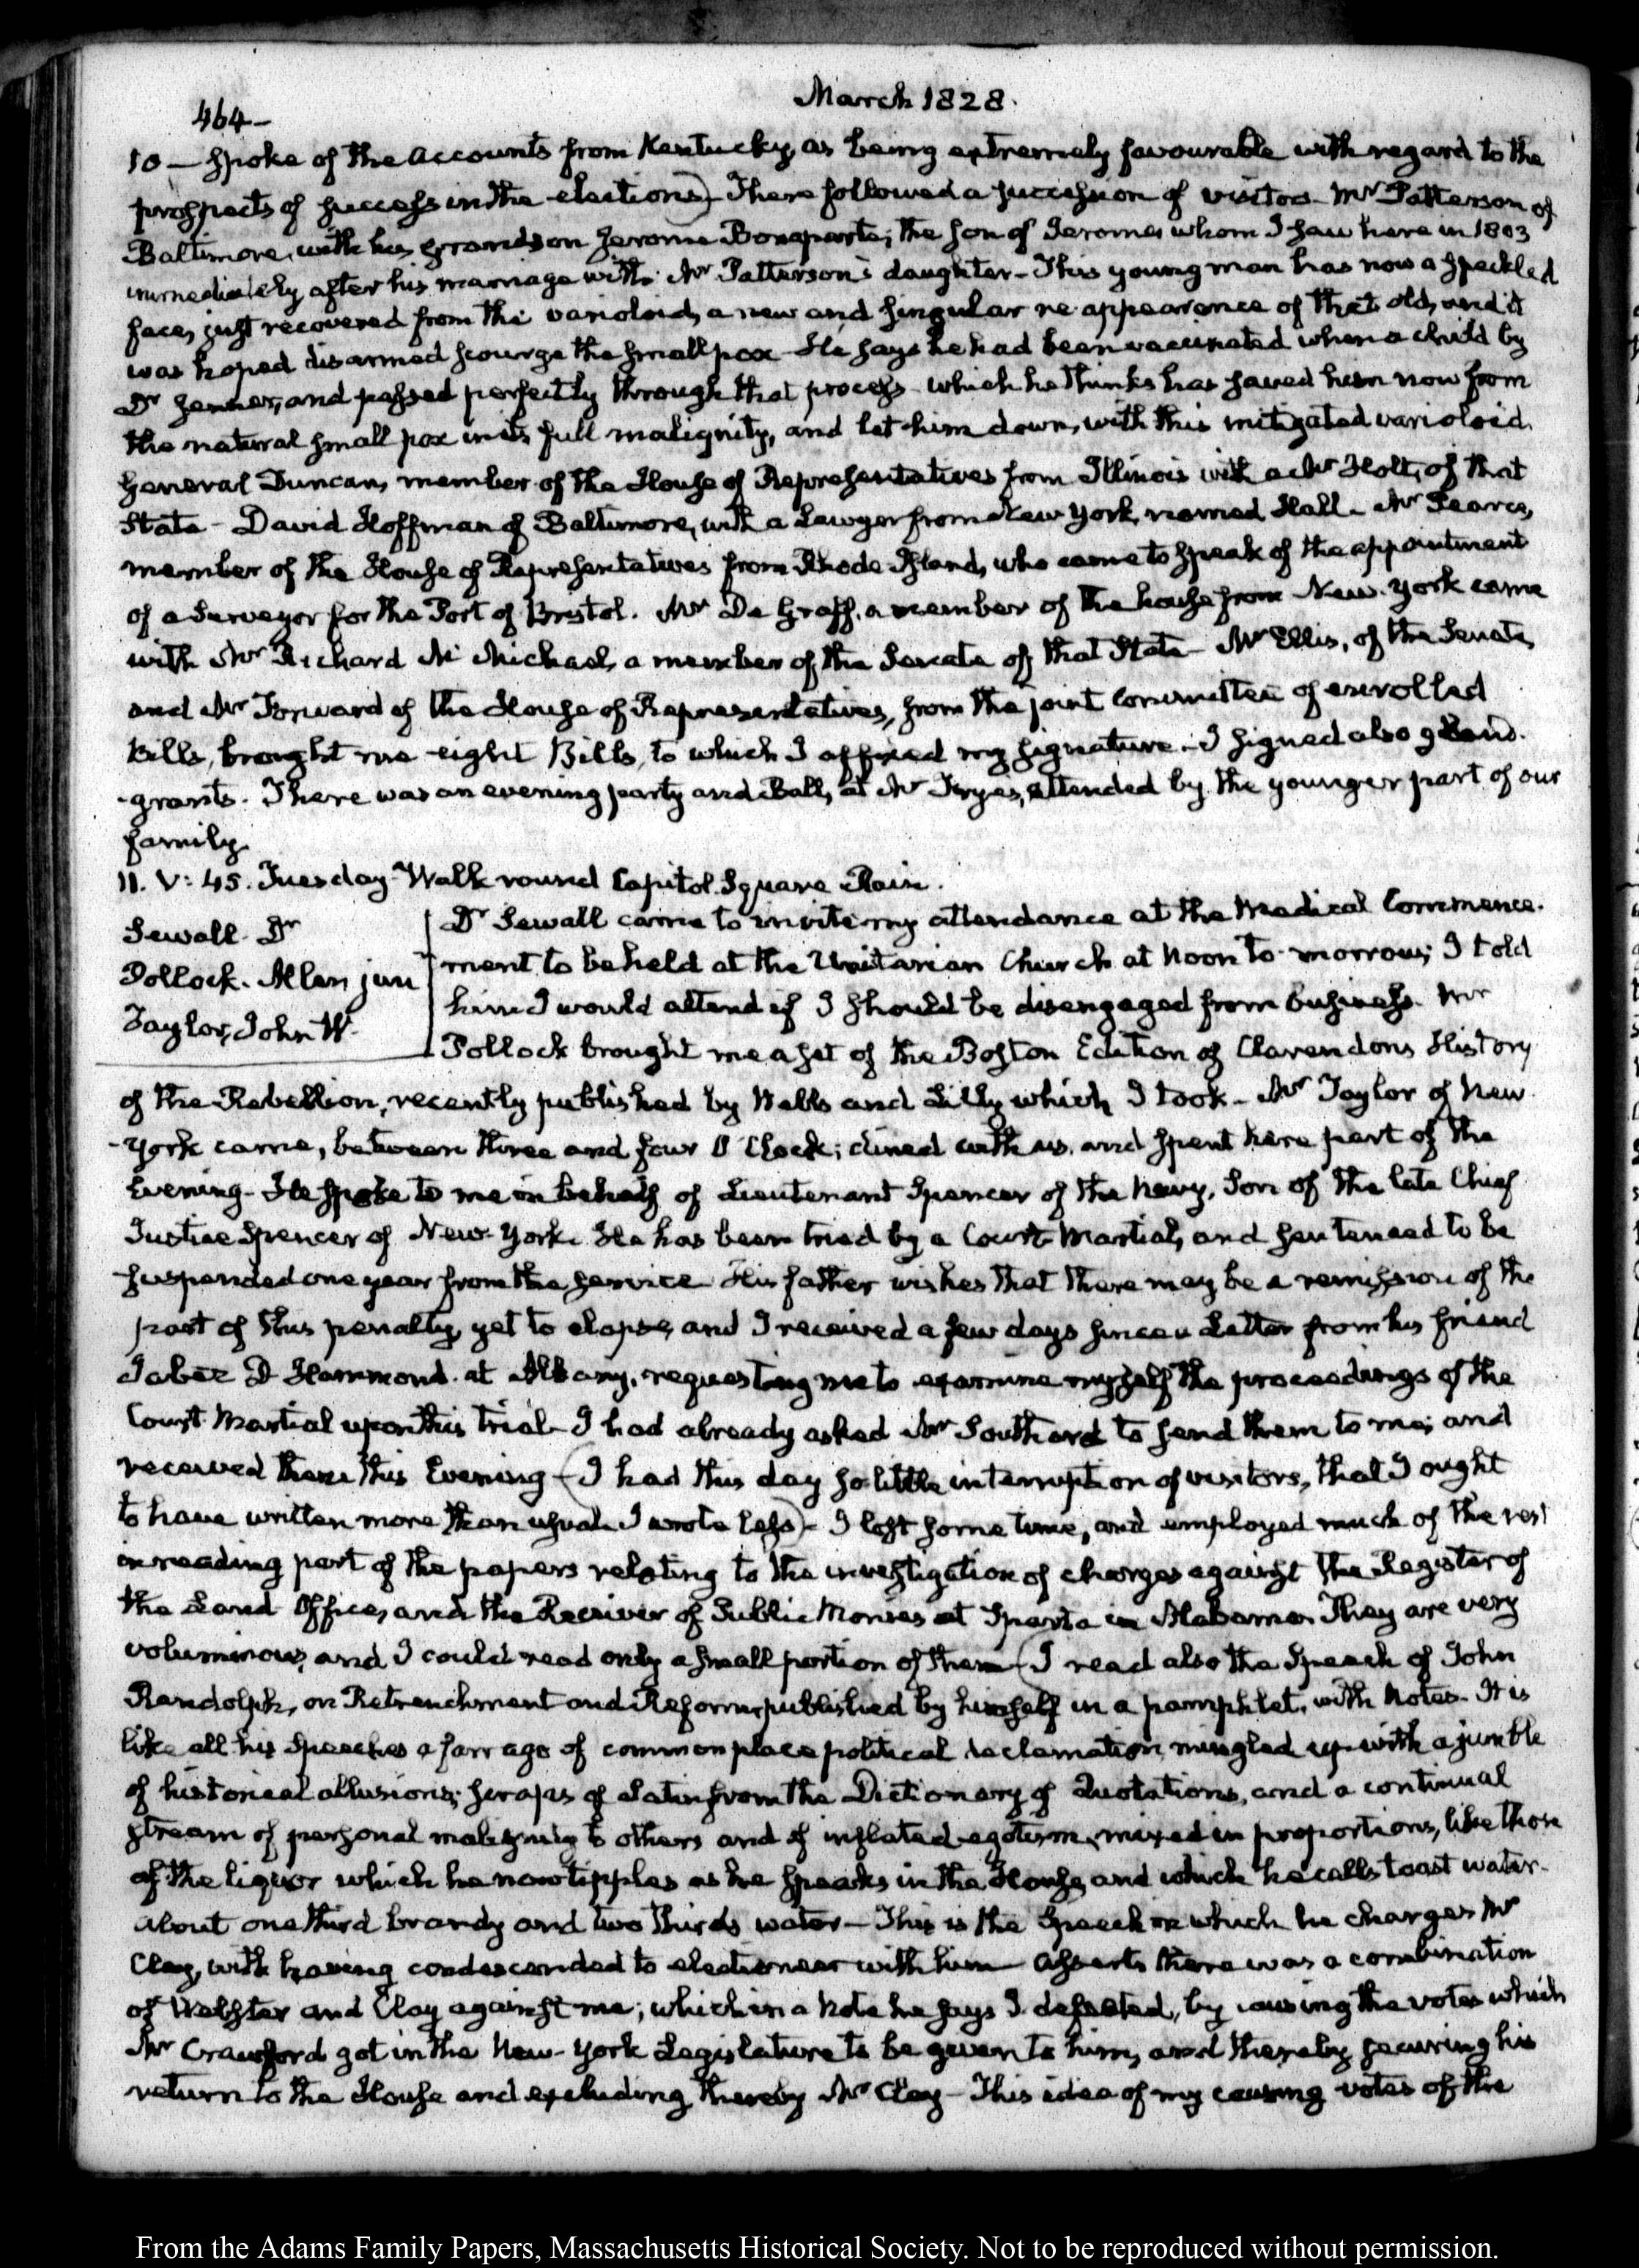 March 1828.
464-
10 — spoke of the accounts from Kentucky, as being extremely favourable with regard to the
prospects of success in the elections)— There followed a succession of visitors— Mr Patterson of
Baltimore, with his grandson Jerome Bonaparte; the son of Jerome, whom I saw here in 1803
immediately after his marriage with Mr Patterson's daughter— This young man has now a speckled
face, just recovered from the varioloid, a new and singular re-appearance of that old, and it
was hoped disarmed scourge the small pox— He says he had been vaccinated when a child by
Dr Jenner, and passed perfectly through that process— which he thinks has saved him now from
the natural small pox in its full malignity, and let him down, with this mitigated varioloid.
General Duncan, member of the House of Representatives from Illinois with a Mr Holt, of that
State— David Hoffman of Baltimore, with a Lawyer from New York, named Hall— Mr Pearce,
member of the House of Representatives from Rhode Island, who came to speak of the appointment
of a Surveyor for the Port of Bristol. Mr De Graff, a member of the house from New-York came
with Mr Richard McMichael, a member of the Senate of that State— Mr Ellis, of the Senate,
and Mr Forward of the House of Representatives, from the joint Committee of enrolled
Bills, brought me eight Bills, to which I affixed my signature.— I signed also 9 Land-
-grants. There was an evening party and Ball, at Mr Frye's, attended by the younger part of our
family.
11. V: 45. Tuesday— Walk round Capitol Square. Rain.
Sewall. Dr
Pollock. Allan jun
Taylor, John W.
Dr Sewall came to invite my attendance at the Medical Commence-
ment to be held at the Unitarian Church at Noon to-morrow; I told
him I would attend if I should be disengaged from business. Mr
Pollock brought me a set of the Boston Edition of Clarendons History
of the Rebellion, recently published by Wells and Lilly which I took— Mr Taylor of New-
-York came, between three and four O'Clock; dined with us, and spent here part of the
Evening— He spoke to me in behalf of Lieutenant Spencer of the Navy, Son of the late Chief
Justice Spencer of New-York. He has been tried by a Court-Martial, and sentenced to be
suspended one year from the service— His father wishes that there may be a remission of the
part of this penalty, yet to elapse, and I received a few days since a Letter from his friend
Jabez D Hammond. at Albany, requesting me to examine myself the proceedings of the
Court Martial upon this trial— I had already asked Mr Southard to send them to me; and
received them this Evening— (I had this day so little interruption of visitors, that I ought
to have written more than usual. I wrote less)— I lost some time, and employed much of the rest
in reading part of the papers relating to the investigation of charges against the Register of
the Land Office, and the Receiver of Public Monies at Sparta in Alabama. They are very
voluminous, and I could read only a small portion of them— (I read also the Speech of John
Randolph, on Retrenchment and Reform, published by himself in a pamphlet, with Notes— It is
like all his Speeches a farrago of commonplace political declamation, mingled up with a jumble
of historical allusions; scraps of Latin from the Dictionary of Quotations, and a continual
stream of personal malignity to others and of inflated egotism, mixed in proportions, like those
of the liquor which he now tipples as he speaks in the House, and which he calls toast water—
about one third brandy and two thirds water— This is the Speech in which he charges Mr
Clay, with having condescended to electioneer with him— asserts there was a combination
of Webster and Clay against me; which in a Note he says I defeated, by causing the votes which
Mr Crawford got in the New-York Legislature to be given to him, and thereby securing his
return to the House and excluding thereby Mr Clay— This idea of my causing votes of the
From the Adams Family Papers, Massachusetts Historical Society. Not to be reproduced without permission.